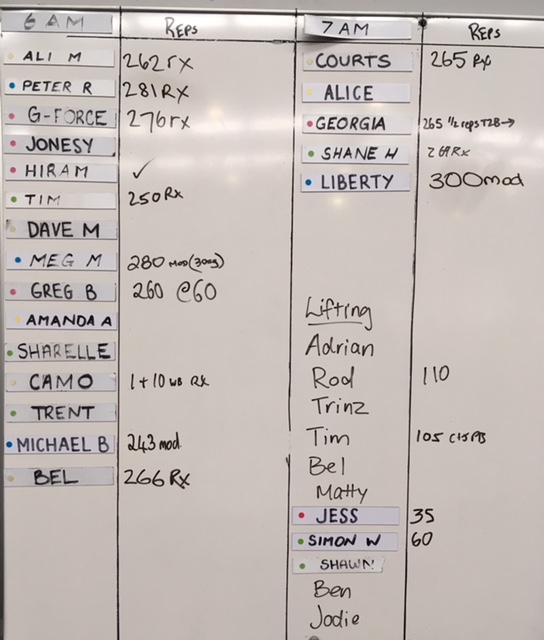 6 AM REPS
ALI M 262 rx
PETER R 281 RX
G-FORCE 276 rx
JONESY
HIRAM ✓
TIM 250 Rx
DAVE M
MEG M 280 MOD (30kg)
GREG B 260 @60
AMANDA A
SHARELLE
CAMO 1 + 10 WB RX
TRENT
MICHAEL B 243 mod
BEL 266 Rx
7 AM REPS
COURTS 265 Rx
ALICE
GEORGIA 265 1/2 reps T2B →
SHANE H Rx
LIBERTY 300 mod
Lifting
Adrian
Rod 110
Trinz
Tim 105 C+J PB
Bel
Matty
JESS 35
SIMON W 60
SHAWN
Ben
Jodie